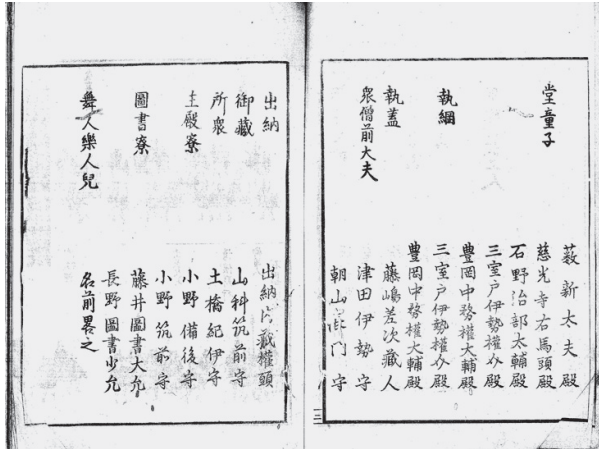 堂童子
藪新太夫殿
慈光寺右馬頭殿
石野治部太輔殿
三室戸伊勢權介殿
執綱
豊岡中務權大輔殿
三室戸伊勢權介殿
豊岡中務權大輔殿
執蓋
藤嶋差次藏人
衆僧前大夫
津田伊勢守
朝山門守
出納
出納藏權頭
御藏
山科筑前守
所衆
土橋紀伊守
主殿寮
小野備後守
小野筑前守
圖書寮
藤井圖書大允
長野圖書少允
舞人樂人兒
名前畧之